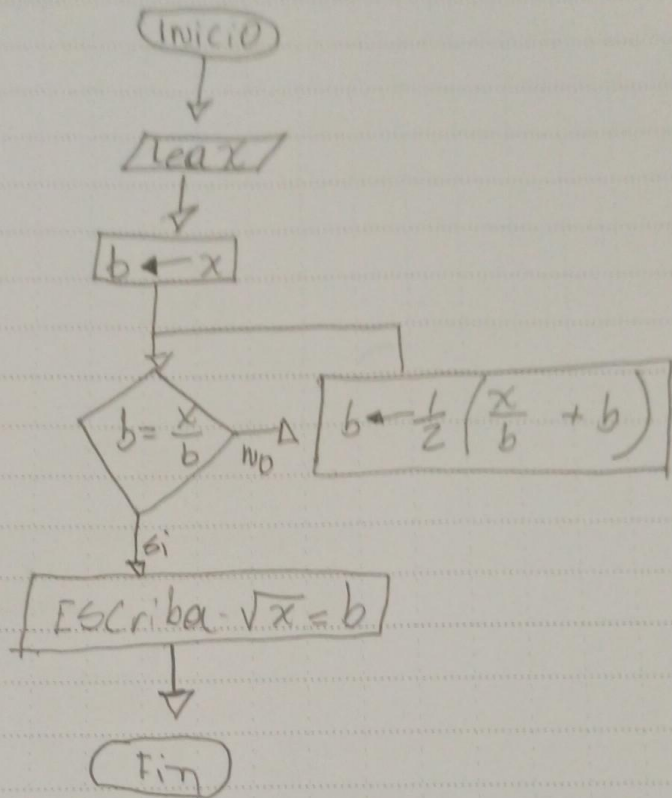 Inicio
Lea x
b ← x
b = x/b
no
b ← 1/2 (x/b + b)
si
Escriba √x = b
Fin